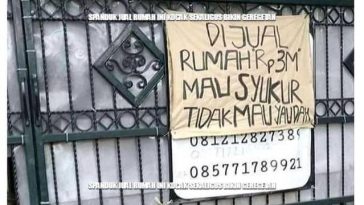 SPANDUK JUAL RUMAH INI KOCAK SEKALIGUS BIKIN GEREGETAN
DIJUAL
RUMAH Rp 3M
MAU SYUKUR
TIDAK MAU YAUDAH
081212827389
085771789921
SPANDUK JUAL RUMAH INI KOCAK SEKALIGUS BIKIN GEREGETAN